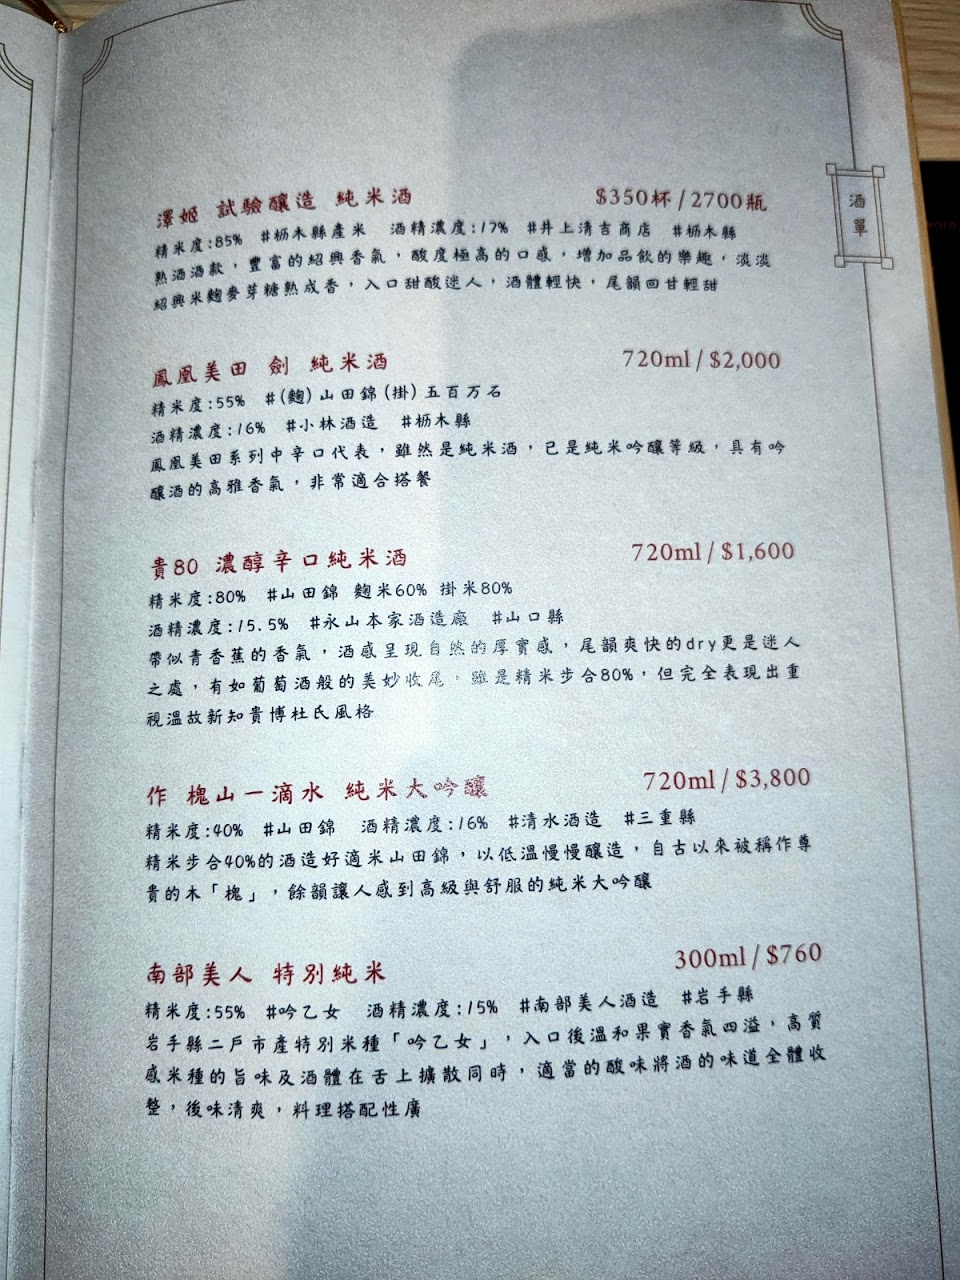 酒單
澤姬 試驗釀造 純米酒 $350杯/2700瓶
精米度:85% #枥木縣產米 酒精濃度:17% #井上清吉商店 #枥木縣
熟酒酒款，豐富的紹興香氣，酸度極高的口感，增加品飲的樂趣，淡淡
紹興米麴麥芽糖熟成香，入口甜酸迷人，酒體輕快，尾韻回甘輕甜
鳳凰美田 劍 純米酒 720ml/$2,000
精米度:55% #(麴)山田錦(掛)五百万石
酒精濃度:16% #小林酒造 #枥木縣
鳳凰美田系列中辛口代表，雖然是純米酒，已是純米吟釀等級，具有吟
釀酒的高雅香氣，非常適合搭餐
貴80 濃醇辛口純米酒 720ml/$1,600
精米度:80% #山田錦 麴米60% 掛米80%
酒精濃度:15.5% #永山本家酒造廠 #山口縣
帶似青香蕉的香氣，酒感呈現自然的厚實感，尾韻爽快的dry更是迷人
之處，有如葡萄酒般的美妙收尾。雖是精米步合80%，但完全表現出重
視溫故新知貴博杜氏風格
作 槐山一滴水 純米大吟釀 720ml/$3,800
精米度:40% #山田錦 酒精濃度:16% #清水酒造 #三重縣
精米步合40%的酒造好適米山田錦，以低溫慢慢釀造，自古以來被稱作尊
貴的木「槐」，餘韻讓人感到高級與舒服的純米大吟釀
南部美人 特別純米 300ml/$760
精米度:55% #吟乙女 酒精濃度:15% #南部美人酒造 #岩手縣
岩手縣二戶市產特別米種「吟乙女」，入口後溫和果實香氣四溢，高質
感米種的旨味及酒體在舌上擴散同時，適當的酸味將酒的味道全體收
整，後味清爽，料理搭配性廣